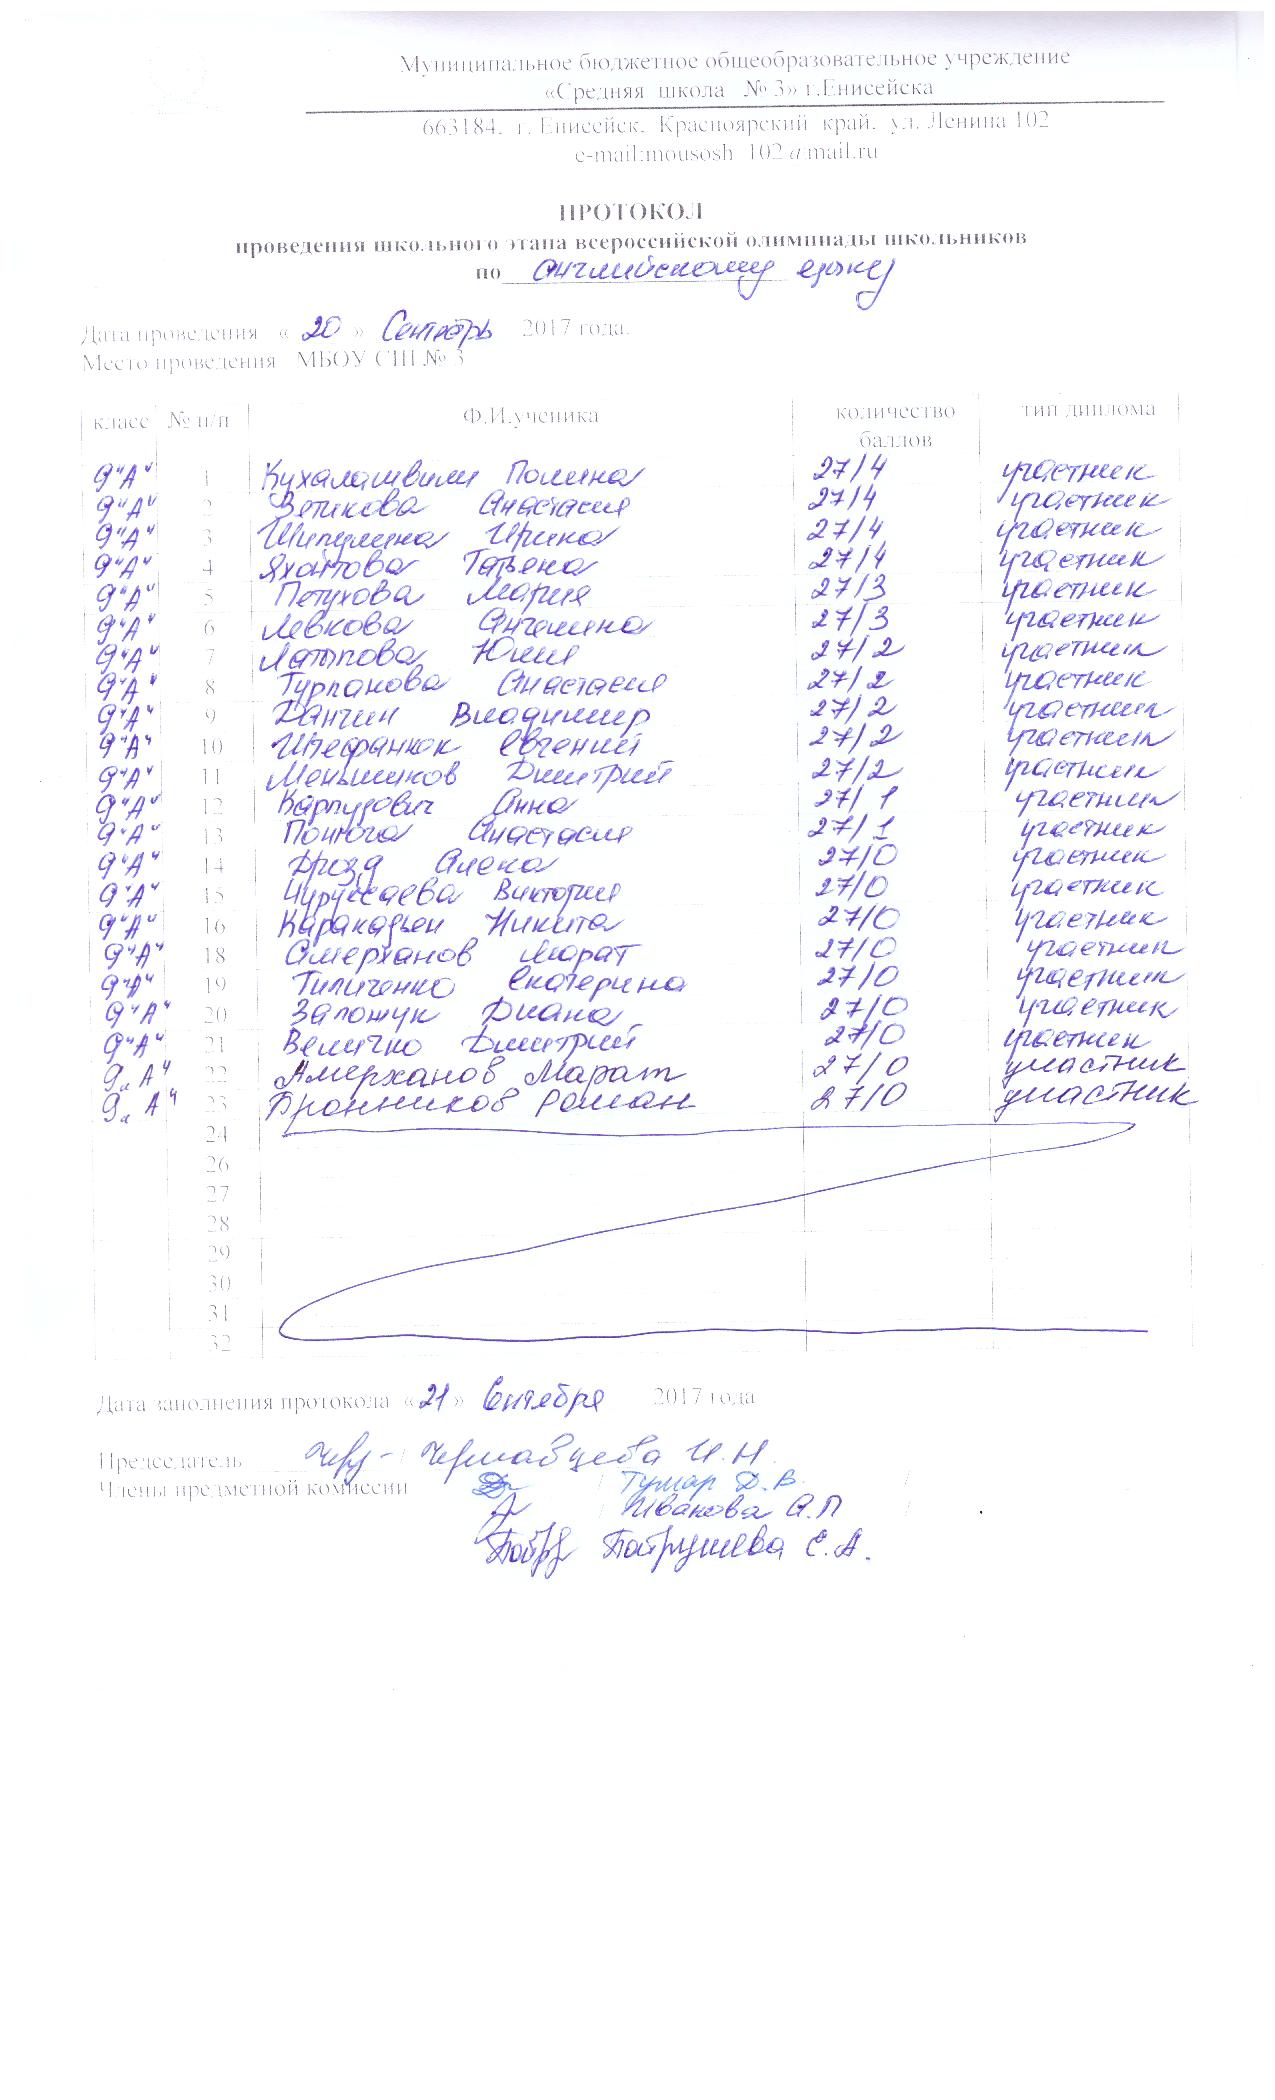 Муниципальное бюджетное общеобразовательное учреждение
«Средняя школа № 3» г.Енисейска
663184, г. Енисейск, Красноярский край, ул. Ленина 102
e-mail:mousosh_102@mail.ru
ПРОТОКОЛ
проведения школьного этапа всероссийской олимпиады школьников
по английскому языку
Дата проведения « 20 » Сентябрь 2017 года.
Место проведения МБОУ СШ № 3
класс № п/п Ф.И.ученика количество баллов тип диплома
9"А" 1 Кухалашвили Полина 27/4 участник
9"А" 2 Анастасия 27/4 участник
9"А" 3 Шипулина Ирина 27/4 участник
9"А" 4 Яхонтова Татьяна 27/4 участник
9"А" 5 Петухова Мария 27/3 участник
9"А" 6 Левкова Ангелина 27/3 участник
9"А" 7 Латыпова Юлия 27/2 участник
9"А" 8 Турпанова Анастасия 27/2 участник
9"А" 9 Ханчин Владимир 27/2 участник
9"А" 10 Штефанюк Евгений 27/2 участник
9"А" 11 Меньшиков Дмитрий 27/2 участник
9"А" 12 Карпусович Анна 27/1 участник
9"А" 13 Анастасия 27/1 участник
9"А" 14 Дрозд Алена 27/0 участник
9"А" 15 Виктория 27/0 участник
9"А" 16 Никита 27/0 участник
9"А" 18 Амерханов Марат 27/0 участник
9"А" 19 Тиличенко Екатерина 27/0 участник
9"А" 20 Запощук Диана 27/0 участник
9"А" 21 Величко Дмитрий 27/0 участник
9„А" 22 Амерханов Марат 27/0 участник
9„А" 23 Бронников Роман 27/0 участник
24
26
27
28
29
30
31
32
Дата заполнения протокола «21» Сентября 2017 года
Председатель Чернавцева И.Н.
Члены предметной комиссии / Тумар Д.В. /
/ Иванова А.П /
Патрушева С.А.